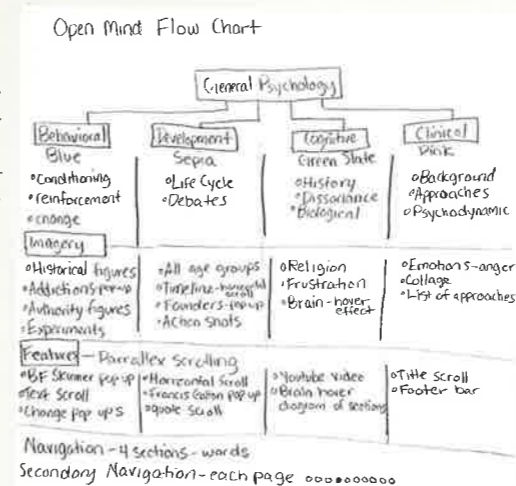 Open Mind Flow Chart
General Psychology
Behavioral
Blue
•Conditioning
•reinforcement
•change
Development
Sepia
•Life Cycle
•Debates
Cognitive
Green Slate
•History
•Dissonance
•Biological
Clinical
Pink
•Background
•Approaches
•Psychodynamic
Imagery
•Historical figures
•Addictions-pop-up
•Authority figures
•Experiments
•All age groups
•Timeline-horizontal
scroll
•Founders-popup
•Action shots
•Religion
•Frustration
•Brain-hover
effect
•Emotions-anger
•Collage
•List of approaches
Feature - Parrallex Scrolling
•BF Skinner pop up
•Text Scroll
•Change pop ups
•Horizontal Scroll
•Francis Galton pop up
•quote scroll
•Youtube video
•Brain hover
diagram of sections
•Title Scroll
•Footer bar
Navigation-4 sections-words
Secondary Navigation-each page oooooooooo